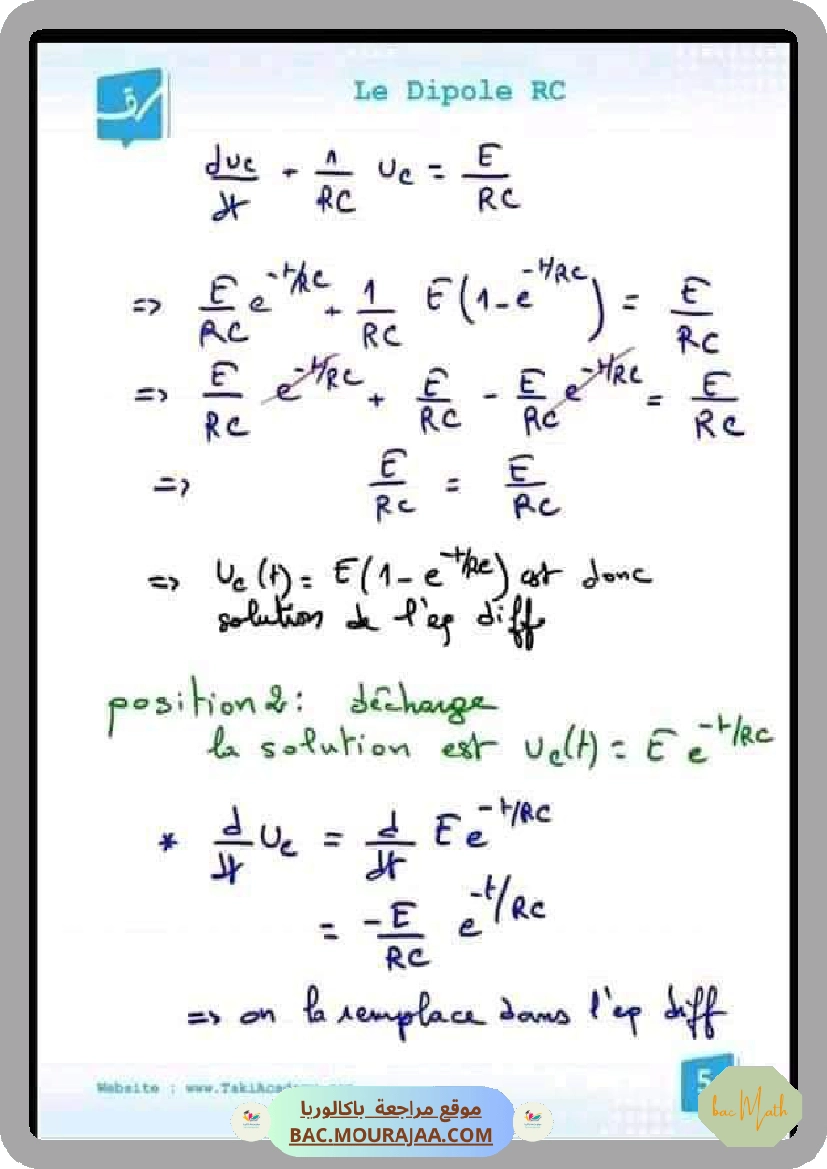 سرق
Le Dipole RC
duc/dt + 1/RC uc = E/RC
=> E/RC e^-t/RC + 1/RC E(1-e^-t/RC) = E/RC
=> E/RC e^-t/RC + E/RC - E/RC e^-t/RC = E/RC
=> E/RC = E/RC
=> Uc(t) = E(1-e^-t/RC) est donc
solution de l'eq diff
position 2 : décharge
la solution est uc(t) = E e^-t/RC
* d/dt Uc = d/dt E e^-t/RC
= -E/RC e^-t/RC
=> on la remplace dans l'eq diff
5
Website : www.TakiAcademy.com
موقع مراجعة باكالوريا
BAC.MOURAJAA.COM
bac Math